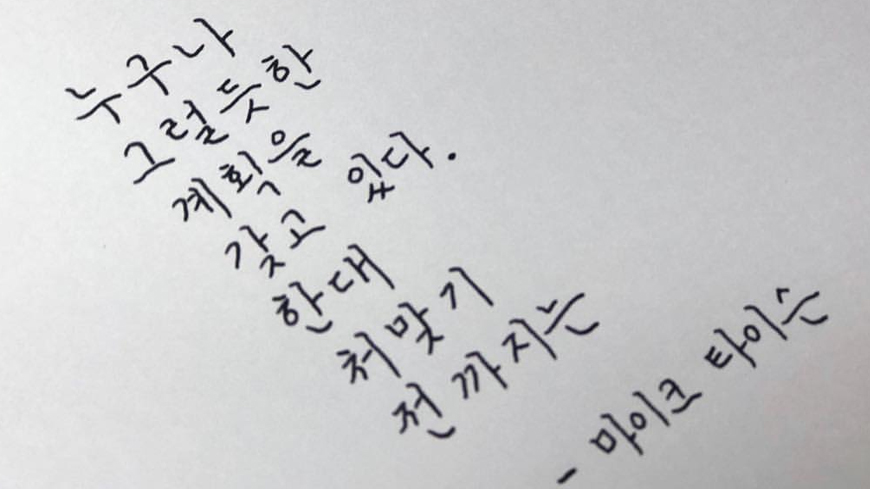 누구나
그럴듯한
계획을
갖고 있다.
한대
처맞기
전까지는
- 마이크 타이슨